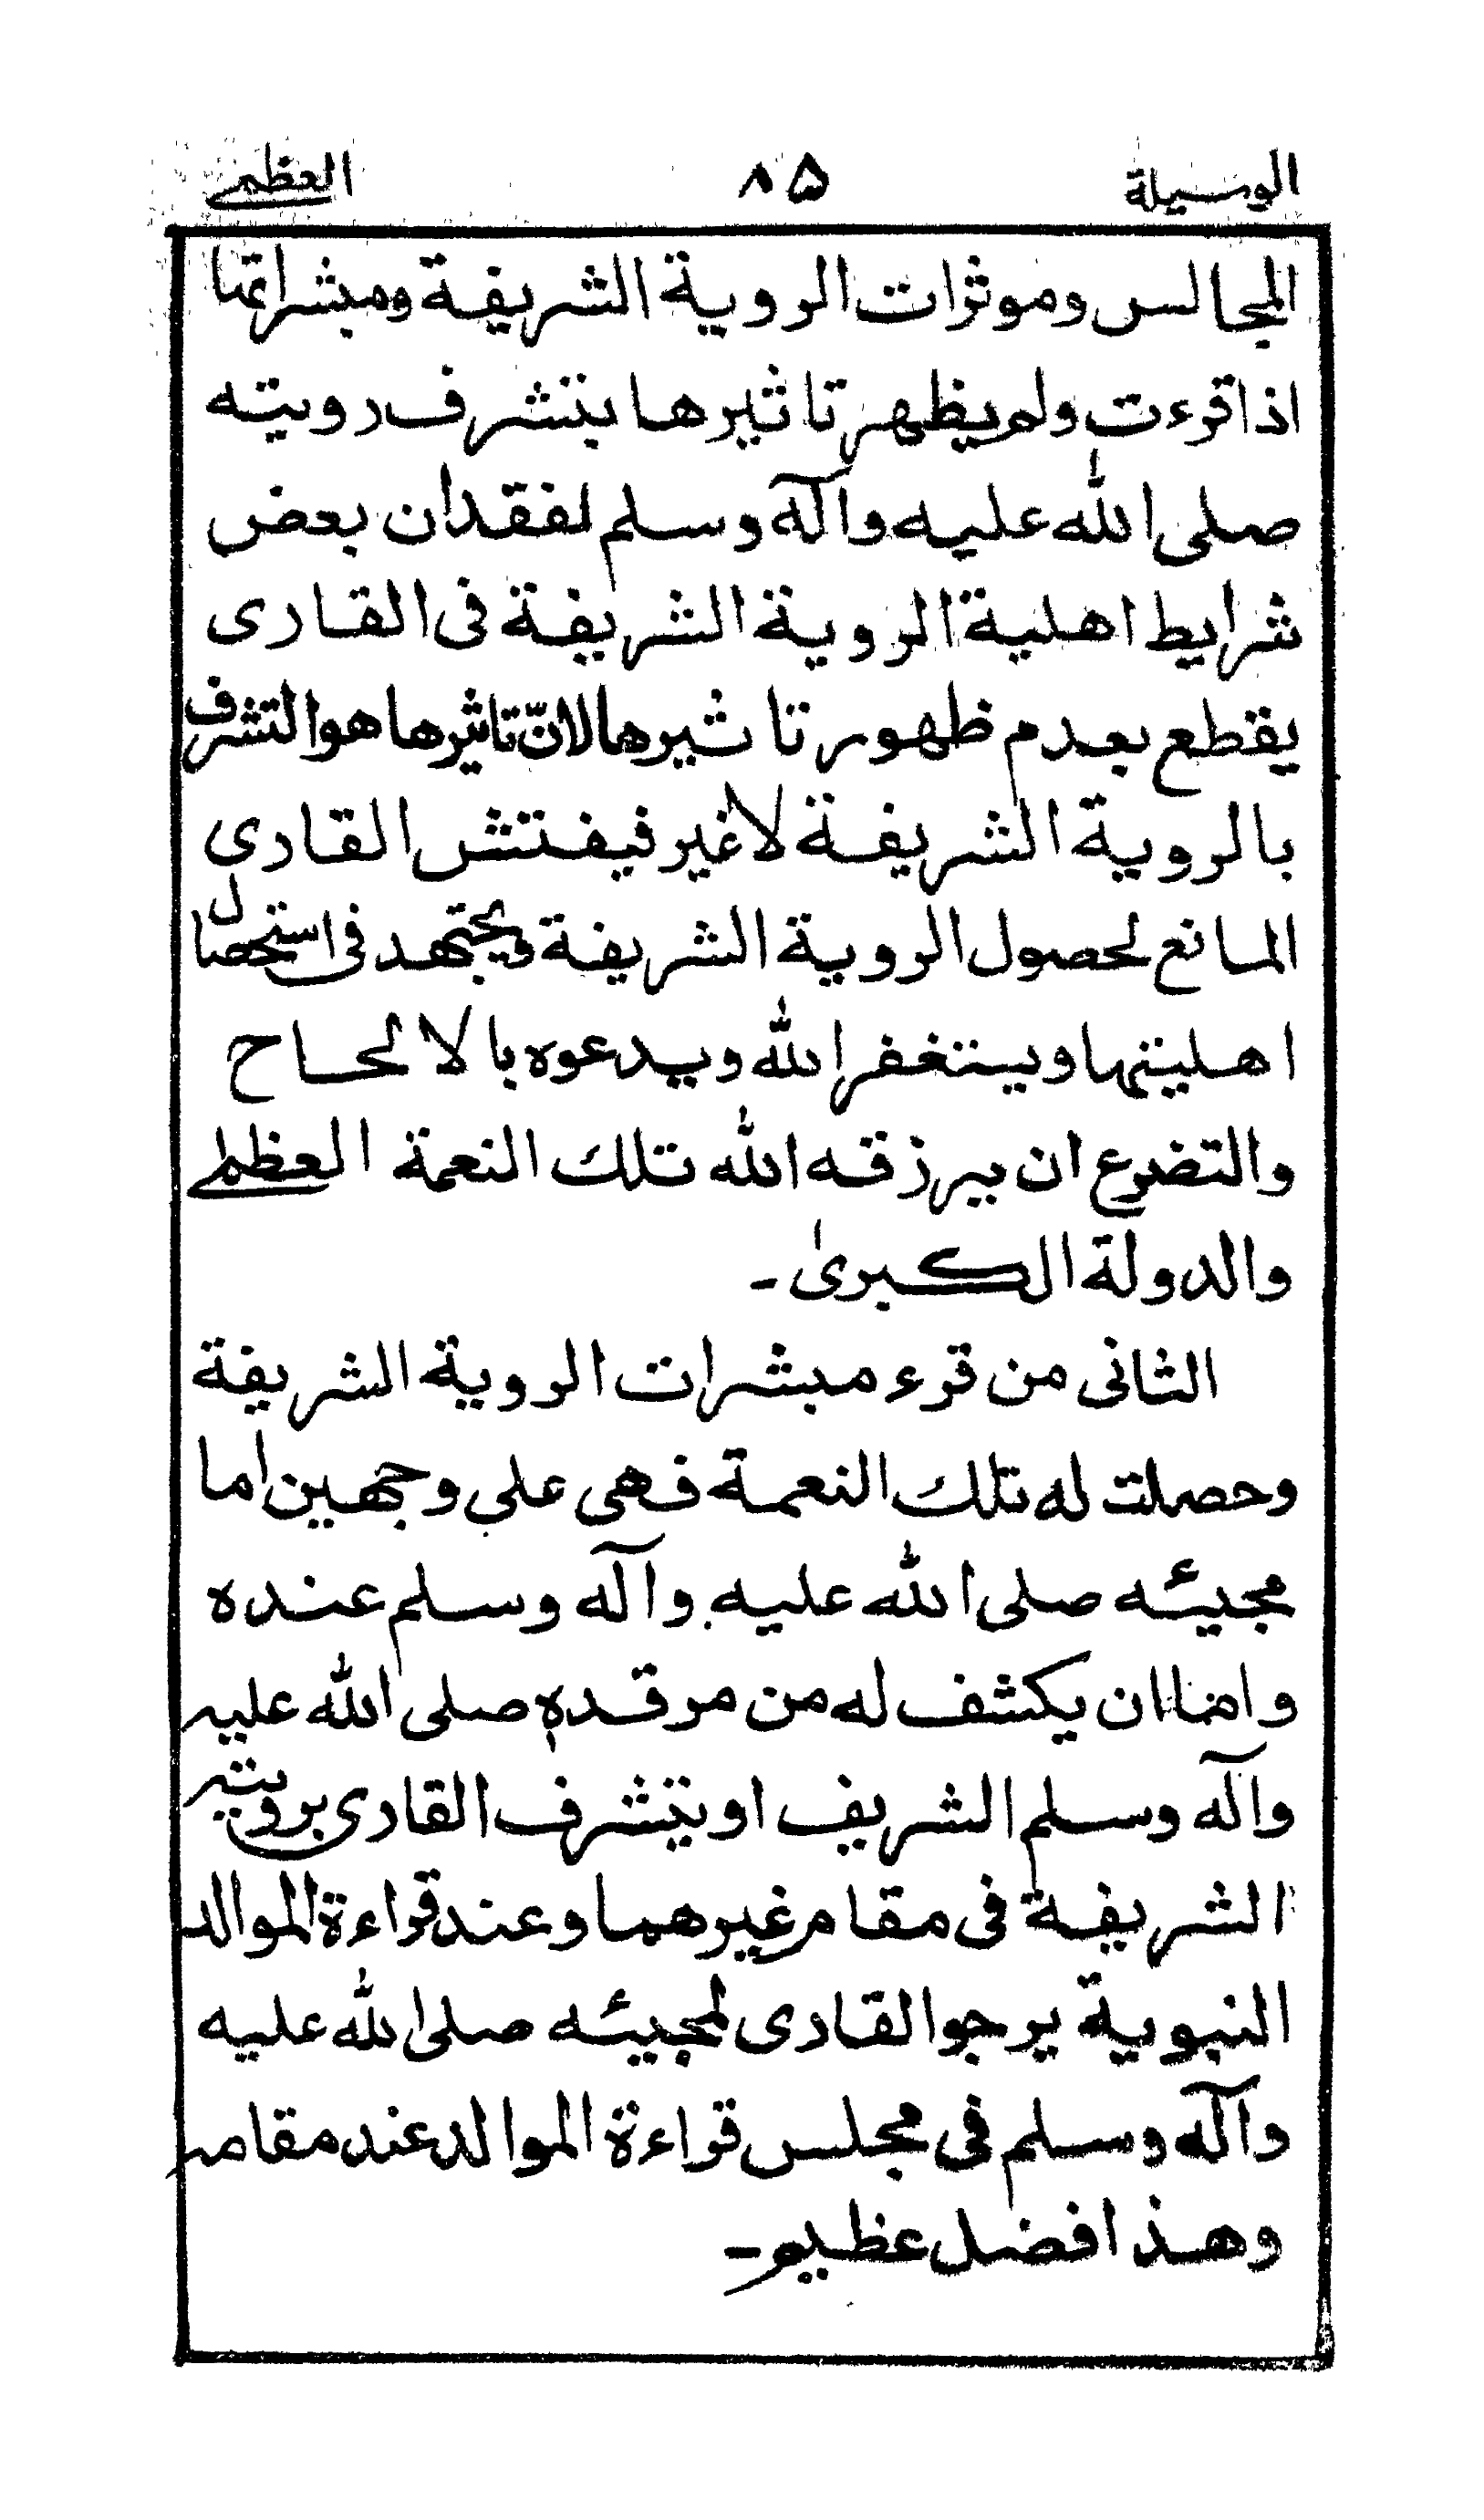 الوسيلة ٨٥ العظمى
المجالس وموثرات الروية الشريفة ومبشراتها
اذا قرءت ولم يظهر تاثيرها بتشرف رويته
صلى الله عليه وآله وسلم لفقدان بعض
شرايط اهلية الروية الشريفة فى القارى
يقطع بعدم ظهور تاثيرها لانّ تاثيرها هو التشرف
بالروية الشريفة لا غير فيفتش القارى
المانع لحصول الروية الشريفة ويجتهد فى استحصال
اهليتها ويستغفر الله ويدعوه بالالحاح
والتضرع ان يرزقه الله تلك النعمة العظمى
والدولة الكبرىٰ ـ
الثانى من قرء مبشرات الروية الشريفة
وحصلت له تلك النعمة فهى على وجهين اما
مجيئه صلى الله عليه وآله وسلم عنده
واما ان يكشف له من مرقده صلى الله عليه
وآله وسلم الشريف او يتشرف القارى برويته
الشريفة فى مقام غيرهما وعند قراءة الموالد
النبوية يرجوا القارى لمجيئه صلى الله عليه
وآله وسلم فى مجلس قراءة الموالد عند مقامه
وهذا فضل عظيم ـ